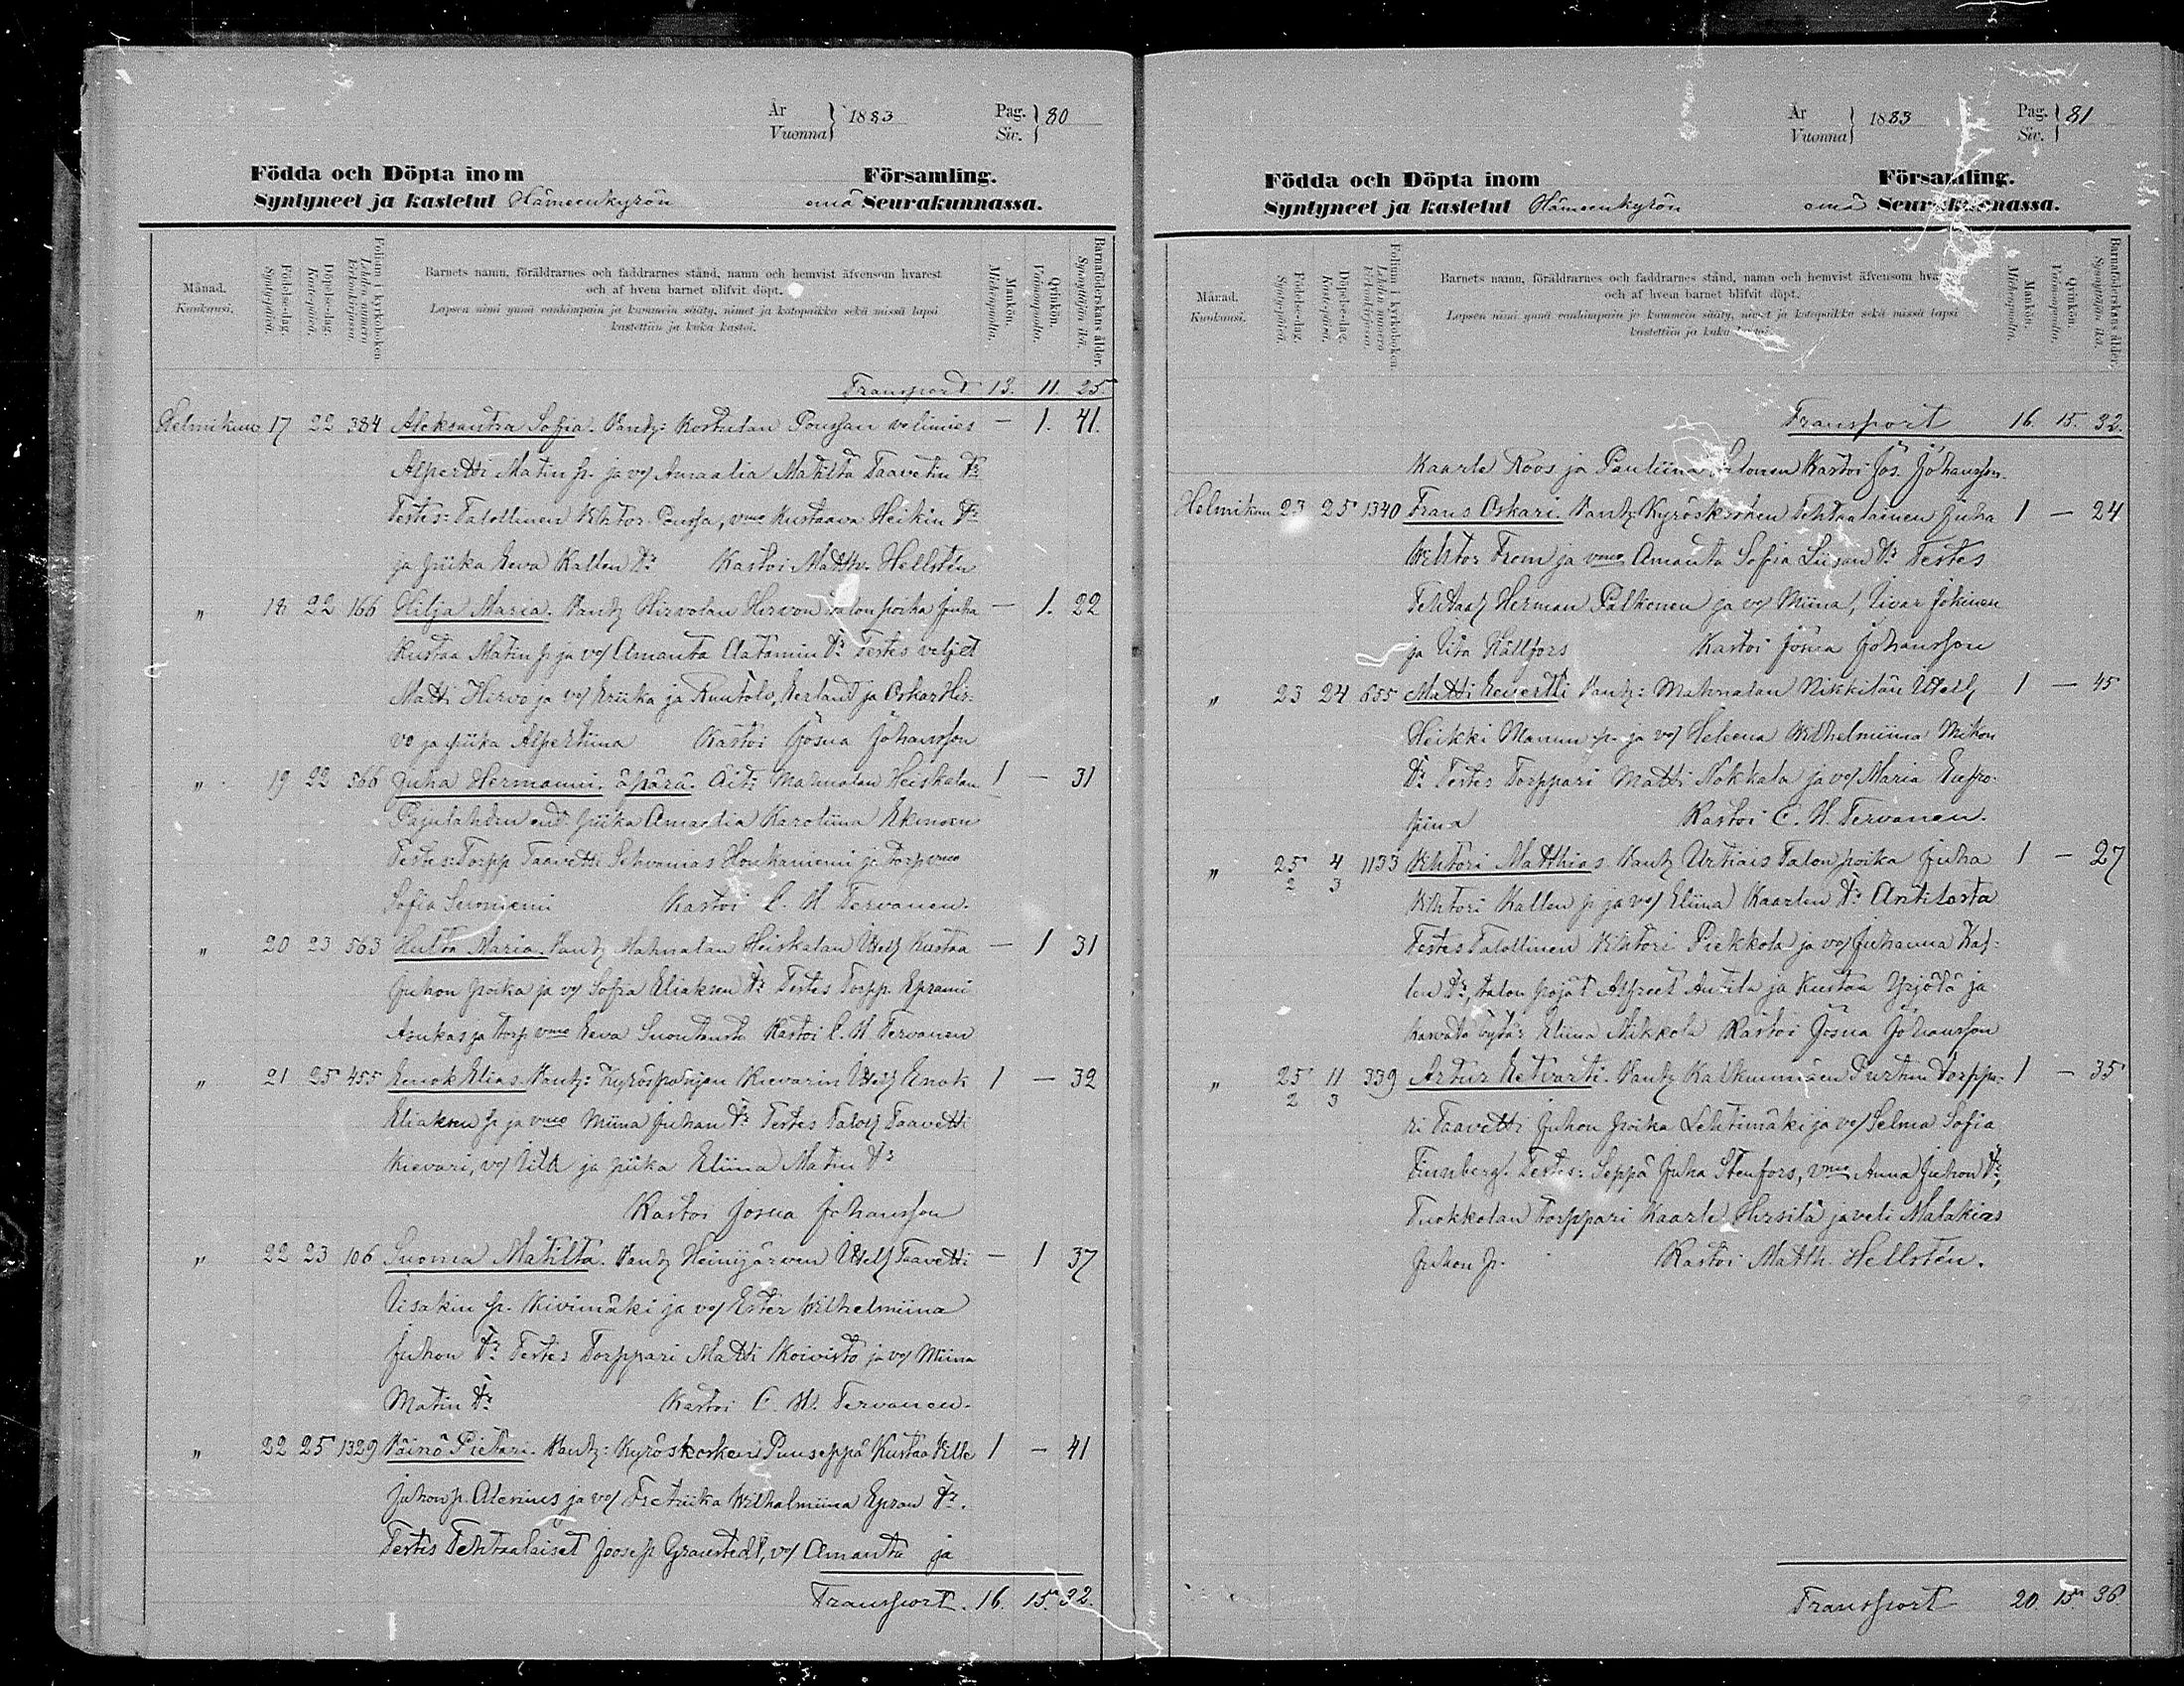 År
Vuonna } 1883
Pag.
Siv. } 80
Födda och Döpta inom Församling.
Syntyneet ja kastetut Hämeenkyrön emä Seurakunnassa.
Månad.
Kuukausi.
Födelse-dag.
Syntypäivä.
Döpelse-dag.
Kastepäivä.
Folium i kyrkoboken.
Lehden numero kirkonkirjassa.
Barnets namn, föräldrarnes och faddrarnes stånd, namn och hemvist äfvensom hvarest
och af hvem barnet blifvit döpt.
Lapsen nimi ynnä vanhimpain ja kummein sääty, nimet ja kotopaikka sekä missä lapsi
kastettiin ja kuka kastoi.
Mankön.
Miehenpuolia.
Qvinkön.
Vaimonpuolia.
Barnaföderskans ålder.
Synnyttäjän ikä.
Transport 13. 11. 25
Helmikuu 17 22 384 Aleksantra Sofia. Vanh: Kostulan Poussan volimies — 1. 41.
Alpertti Matin p. ja vo/ Amaalia Matilta Taavetin tr
Testes: Talollinen Vihtor Poussa, vmo Kustaava Heikin tr
ja piika Eeva Kallen tr Kastoi Matth. Hellstén
" 18 22 166 Hilja Maria. Vanh Hirvolan Hirvon talonpoika Juha — 1. 22
Kustaa Matin p ja vo/ Amanta Aatamin tr Testes veljet
Matti Hirvo ja vo/ Eriika ja Ruutolv, Eerland ja Oskar Hir-
vo ja piika Alpertiina Kastoi Josua Johansson
" 19 22 566 Juha Hermanni. äpärä. Äiti Mahnalan Heiskalan 1 — 31
Pajulahden ent. piika Amaalia Karoliina
Testes: Torpp Taavetti Honkaniemi ja torp vmo
Sofia Kastoi C. H. Tervanen.
" 20 23 563 Hulta Maria. Vanh Mahnalan Heiskalan Itsell Kustaa — 1 31
Juhon poika ja vo/ Sofia Eliaksen tr Testes Torpp. Eprami
Asukas ja torp vmo Eeva Kastoi C. H. Tervanen
" 21 25 455 Eenok Elias. Vanh: Kyröspohjan Kievarin Itsell Enok 1 — 32
Eliaksen p ja vmo Miina Juhan tr Testes Taloll Taavetti
Kievari, vo/ Iita ja piika Eliina Matin tr
Kastoi Josua Johansson
" 22 23 106 Suoma Matilta. Vanh Heinijärven Itsell Taavetti — 1 37
Iisakin p. Kivimäki ja vo/ Ester Wilhelmiina
Juhon tr Testes Torppari Matti Koivisto ja vo/ Miina
Matin tr Kastoi C. H. Tervanen.
" 22 25 1329 Väinö Pietari. Vanh: Kyröskosken Puuseppä Kustaa Ville 1 — 41
Juhon p. Alenius ja vo/ Fretriika Wilhelmiina Epran tr.
Testes Tehtaalaiset Joosep Granstedt, vo/ Amanta ja
Transport. 16. 15. 32.
År
Vuonna } 1883
Pag.
Siv. } 81
Födda och Döpta inom Församling.
Syntyneet ja kastetut Hämeenkyrön emä Seurakunnassa.
Månad.
Kuukausi.
Födelse-dag.
Syntypäivä.
Döpelse-dag.
Kastepäivä.
Folium i kyrkoboken.
Lehden numero kirkonkirjassa.
Barnets namn, föräldrarnes och faddrarnes stånd, namn och hemvist äfvensom
och af hvem barnet blifvit döpt.
Lapsen nimi ynnä vanhimpain ja kummein sääty, nimet ja kotopaikka sekä missä lapsi
kastettiin ja kuka kastoi.
Mankön.
Miehenpuolia.
Qvinkön.
Vaimonpuolia.
Barnaföderskans ålder.
Synnyttäjän ikä.
Transport 16. 15. 32.
Kaarle Roos ja Pauliina Salonen Kastoi Jos. Johansson.
Helmikuu 23 25 1340 Frans Oskari. Vanh Kyröskosken Tehtaalainen Juha 1 — 24
Vihtor ja vmo Amanta Sofia Liisan tr Testes
Tehtaal Herman Palkonen ja vo/ Miina, Iivar Jokinen
ja Iita Hällfors Kastoi Josua Johansson
" 23 24 655 Matti Eevertti Vanh: Mahnalan Nikkilän Itsell 1 — 45
Heikki Manun p. ja vo/ Heleena Wilhelmiina Mikon
tr Testes Torppari Matti Nokkala ja vo/ Maria Eufro-
siina Kastoi C. H. Tervanen.
" 25/2 4/3 1133 Vihtori Matthias Vanh Urtiais Talon poika Juha 1 — 27
Vihtori Kallen p ja vo/ Eliina Kaarlen tr Anttilasta
Testes Talollinen Vihtori Piekkola ja vo/ Juhanna Kal-
len tr, talon pojat Alfreet Antila ja Kustaa Yrjölä ja
tytär Eliina Mikkola Kastoi Josua Johansson
" 25/2 11/3 339 Artur Eetvarti. Vanh Kalkunmäen Turkin torppa- 1 — 35
ri Taavetti Juhon poika Lehtimäki ja vo/ Selma Sofia
Finnberg. Testes: Seppä Juha Stenfors, vmo Anna Juhon tr,
Tuokkolan torppari Kaarle Hirsilä ja veli Malakias
Juhon p. Kastoi Matth. Hellstén.
Transport 20. 15. 36.